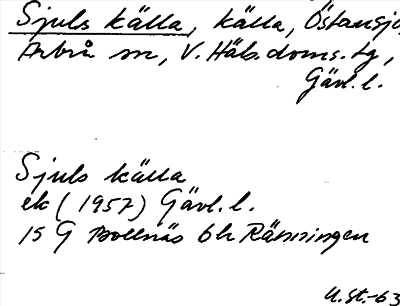 Sjuls källa, källa, Östansjö,
Arbrå sn, V. Häls. doms. tg,
Gävl. l.
Sjuls källa
ek (1957) Gävl. l.
15 G Bollnäs 6hRänningen
U. St.-63